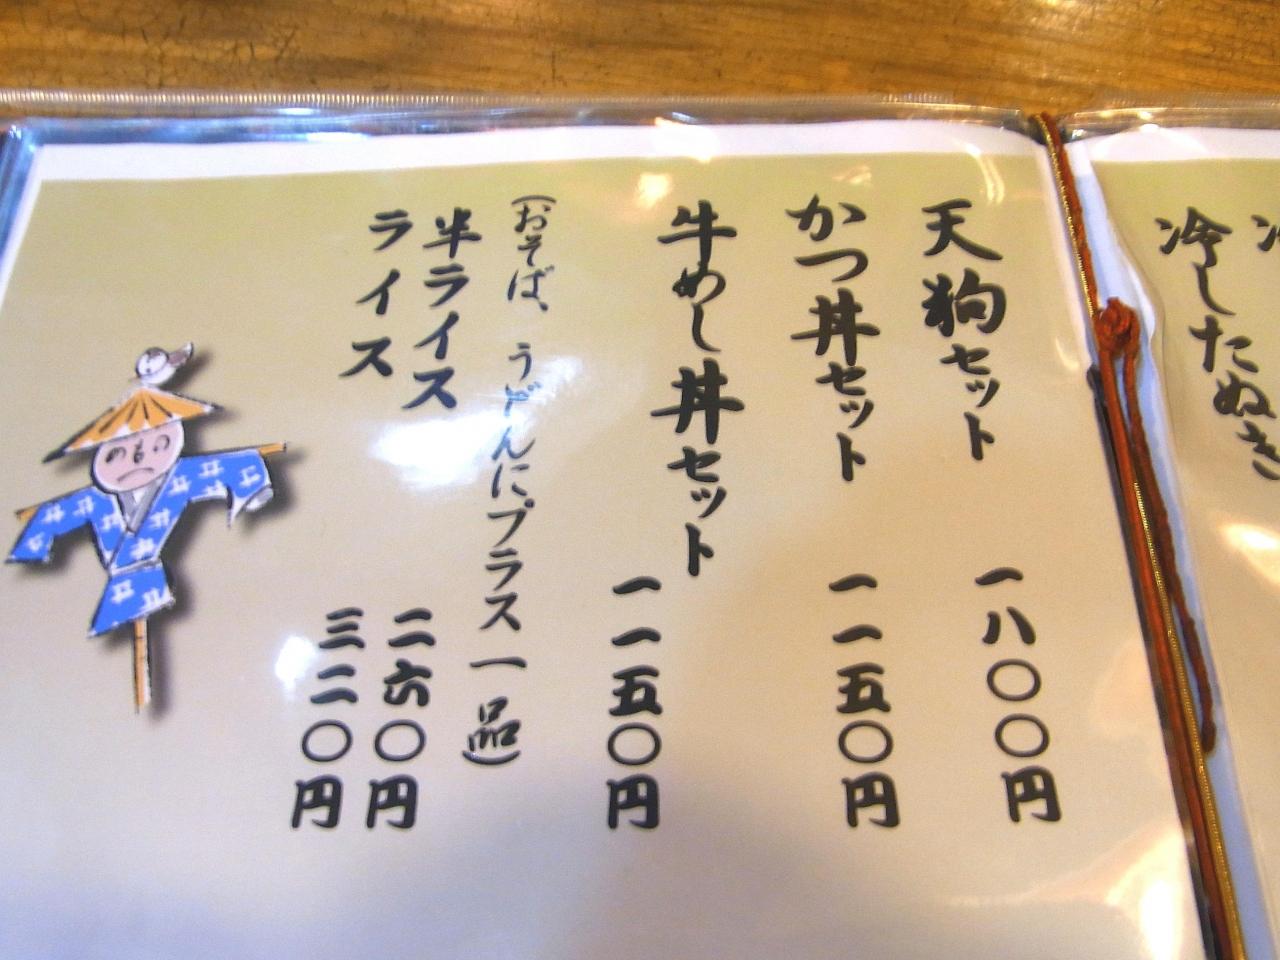 冷したぬき
天狗セット 一八〇〇円
かつ丼セット 一一五〇円
牛めし丼セット 一一五〇円
(おそば、うどんにプラス一品)
半ライス 二六〇円
ライス 三二〇円